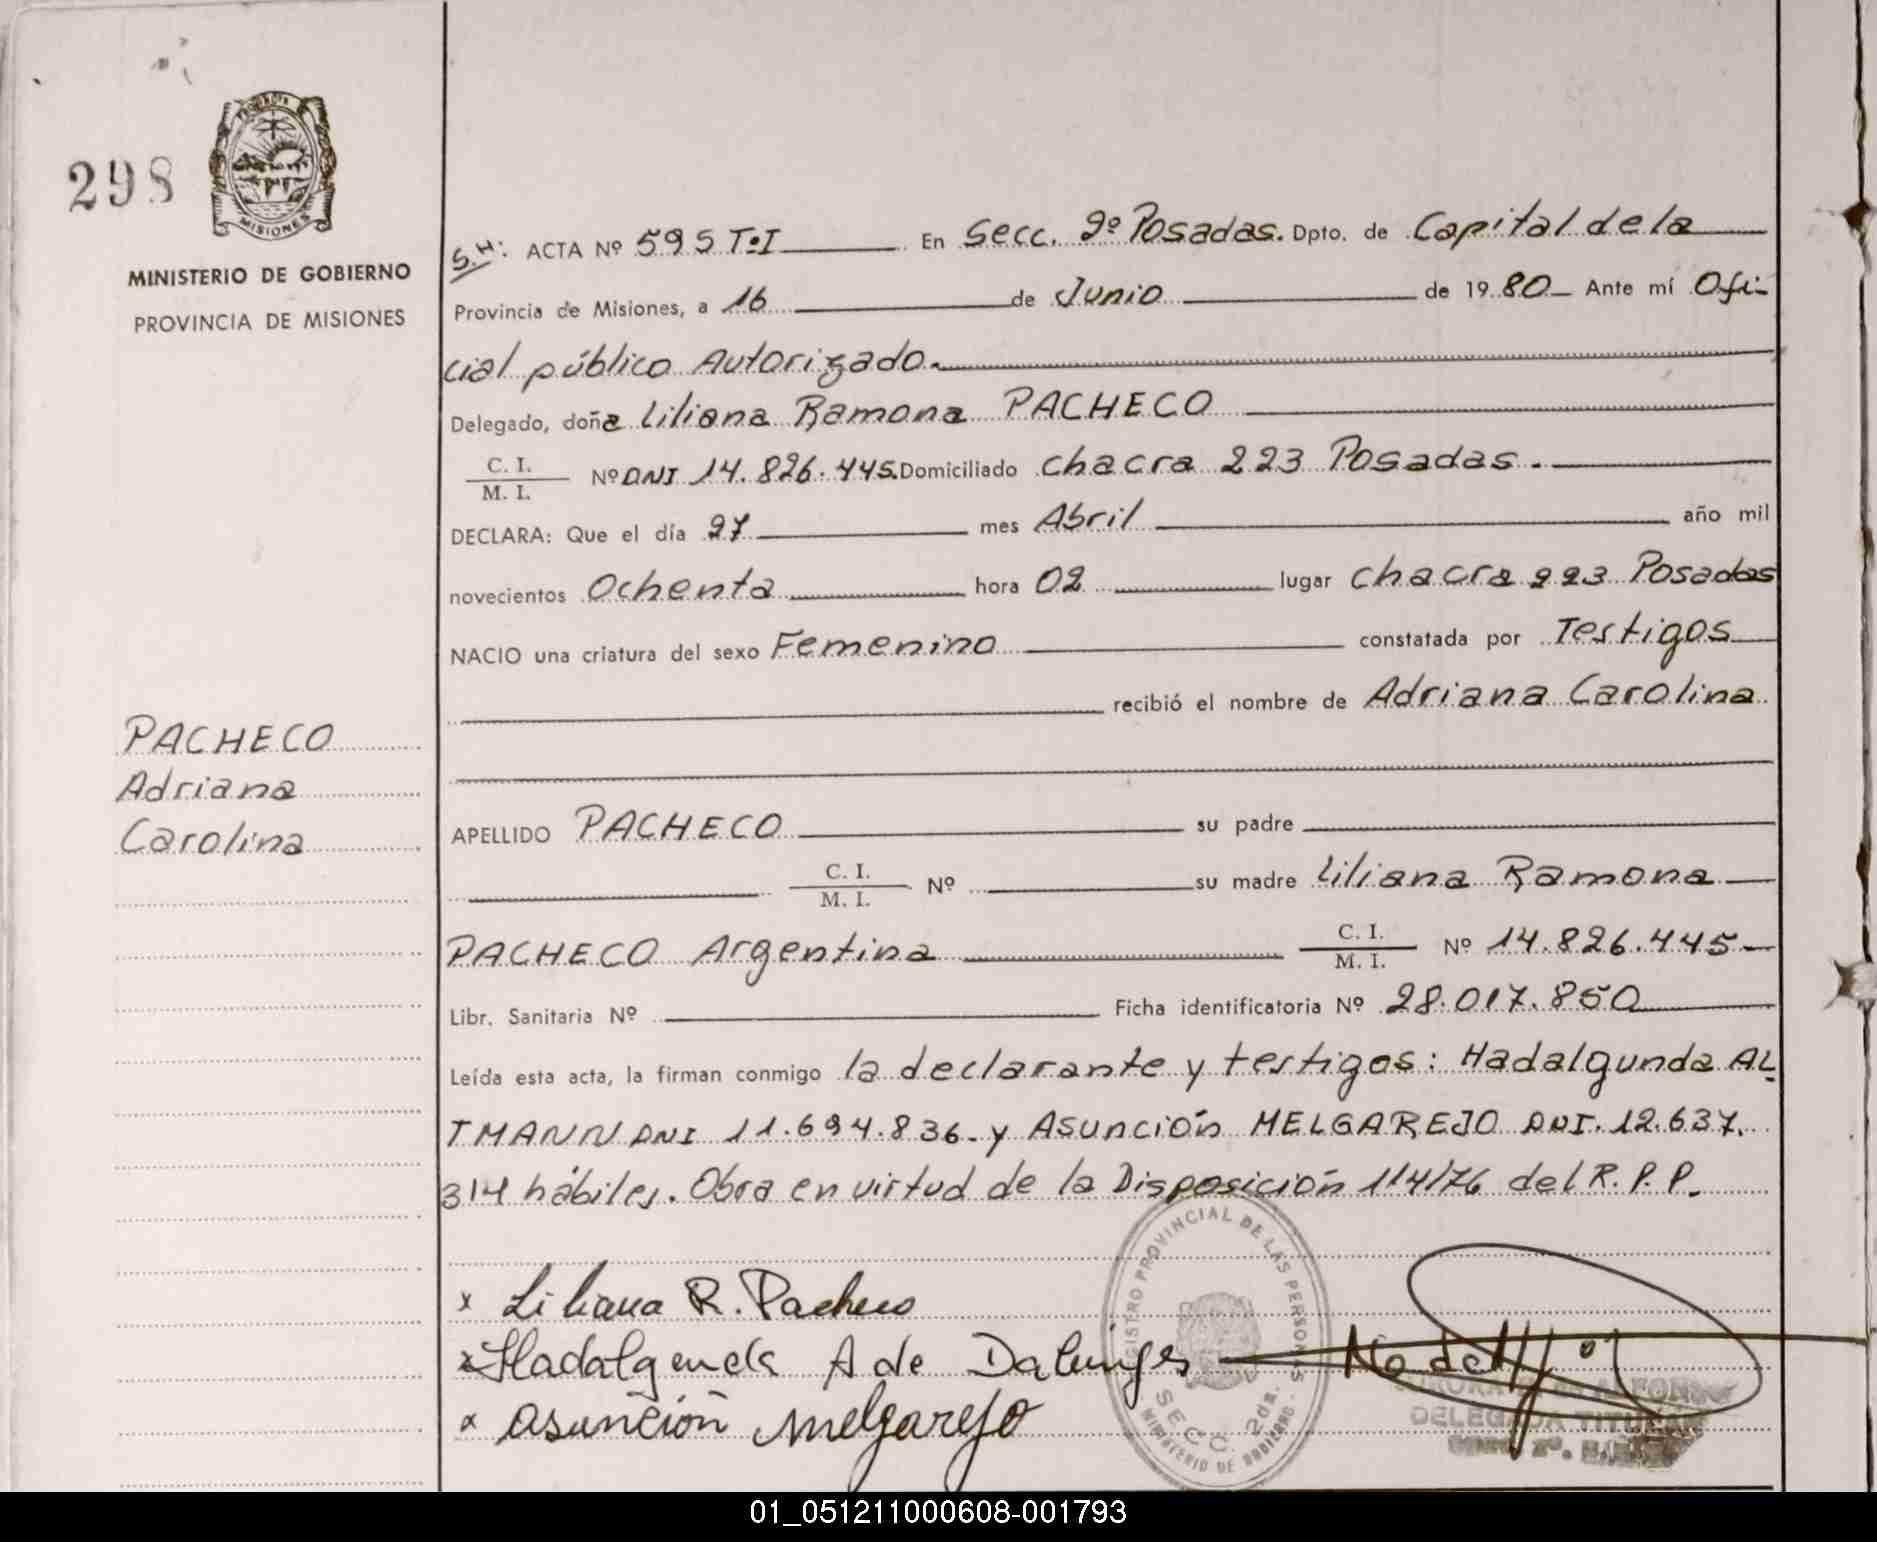 298
MISIONES
MINISTERIO DE GOBIERNO
PROVINCIA DE MISIONES
PACHECO
Adriana
Carolina
S.H: ACTA Nº 595 TºI En Secc. 2º Posadas. Dpto. de Capital de la
Provincia de Misiones, a 16 de Junio de 1980 Ante mí Ofi-
cial público Autorizado.
Delegado, doña Liliana Ramona PACHECO
C. I.
M. I. Nº DNI 14.826.445. Domiciliado Chacra 223 Posadas.
DECLARA: Que el día 27 mes Abril año mil
novecientos Ochenta hora 02 lugar Chacra 223 Posadas
NACIO una criatura del sexo Femenino constatada por Testigos
recibió el nombre de Adriana Carolina
APELLIDO PACHECO su padre
C. I.
M. I. Nº su madre Liliana Ramona
PACHECO Argentina C. I.
M. I. Nº 14.826.445
Libr. Sanitaria Nº Ficha identificatoria Nº 28.017.850
Leída esta acta, la firman conmigo la declarante y testigos: Hadalgunda AL
TMANN DNI 11.694.836. y Asunción MELGAREJO DNI. 12.637.
314 hábiles. Obra en virtud de la Disposición 114/76 del R. P. P.
x Liliana R. Pacheco
x Hadalgunda A de
x Asunción Melgarejo
REGISTRO PROVINCIAL DE LAS PERSONAS
SECC. 2da.
MINISTERIO DE GOBIERNO
DELEGADA TITULAR
01_051211000608-001793